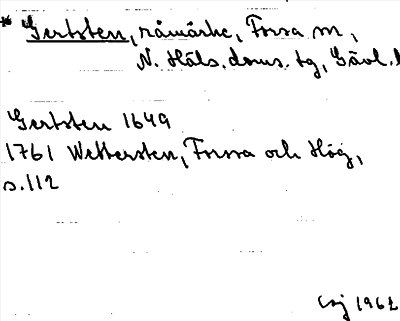 * Gertsten, råmärke, Forsa sn,
N. Häls. doms. tg, Gävl. l
Gertsten 1649
1761 Wettersten, Forssa och Hög,
s. 112
1962